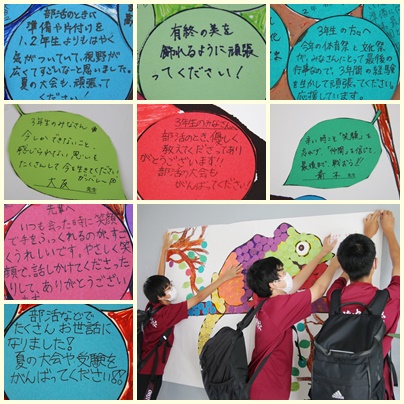 部活のときに
準備や片付けを
1、2年生よりもはやく
気がついていて、視野が
広くてすごいな〜と思いました。
夏の大会も、頑張って
ください!
有終の美を
飾れるように頑張
ってください!
3年生の方々へ
今年の体育祭と文化祭
が、みなさんにとって最後の
行事なので、3年間の経験
を生かして頑張ってください
応援しています。
3年生のみなさん
今しかできないこと、
感じられない思いを
たくさんして今を生きてください
3年生のみなさん
部活のとき、優しく
教えてくださってあり
がとうございます!!
部活の大会も
がんばってください!
辛い時こそ「笑顔」を
忘れず「仲間」を信じて、
最後まで戦おう!!
青木
先輩へ
いつも会った時に笑顔
で手をふってくれるのが、すご
くうれしいです。やさしく笑
顔で、話しかけてくださった
りして、ありがとうござい
ます
部活などで
たくさんお世話に
なりました!
夏の大会や受験を
がんばってください!!